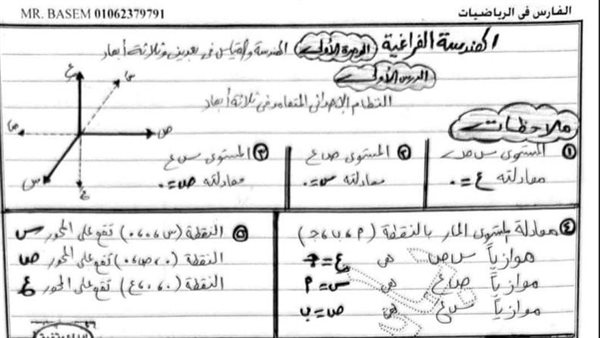 الفارس فى الرياضيات
MR. BASEM 01062379791
الهندسة الفراغية
الوحدة الأولى
الهندسة والقياس فى بعدين وثلاثة أبعاد
الدرس الأول
النظام الإحداثى المتعامد فى ثلاثة أبعاد
ملاحظات
ع
سَ
صَ
ص
س
عَ
① المستوى س ص
معادلته ع = ٠
② المستوى ص ع
معادلته س = ٠
③ المستوى س ع
معادلته ص = ٠
④ معادلة المستوى المار بالنقطة (م، ب، ج)
موازياً س ص هى ع = ج
موازياً ص ع هى س = م
موازياً س ع هى ص = ب
⑤ النقطة (س، ٠، ٠) تقع على المحور س
النقطة (٠، ص، ٠) تقع على المحور ص
النقطة (٠، ٠، ع) تقع على المحور ع